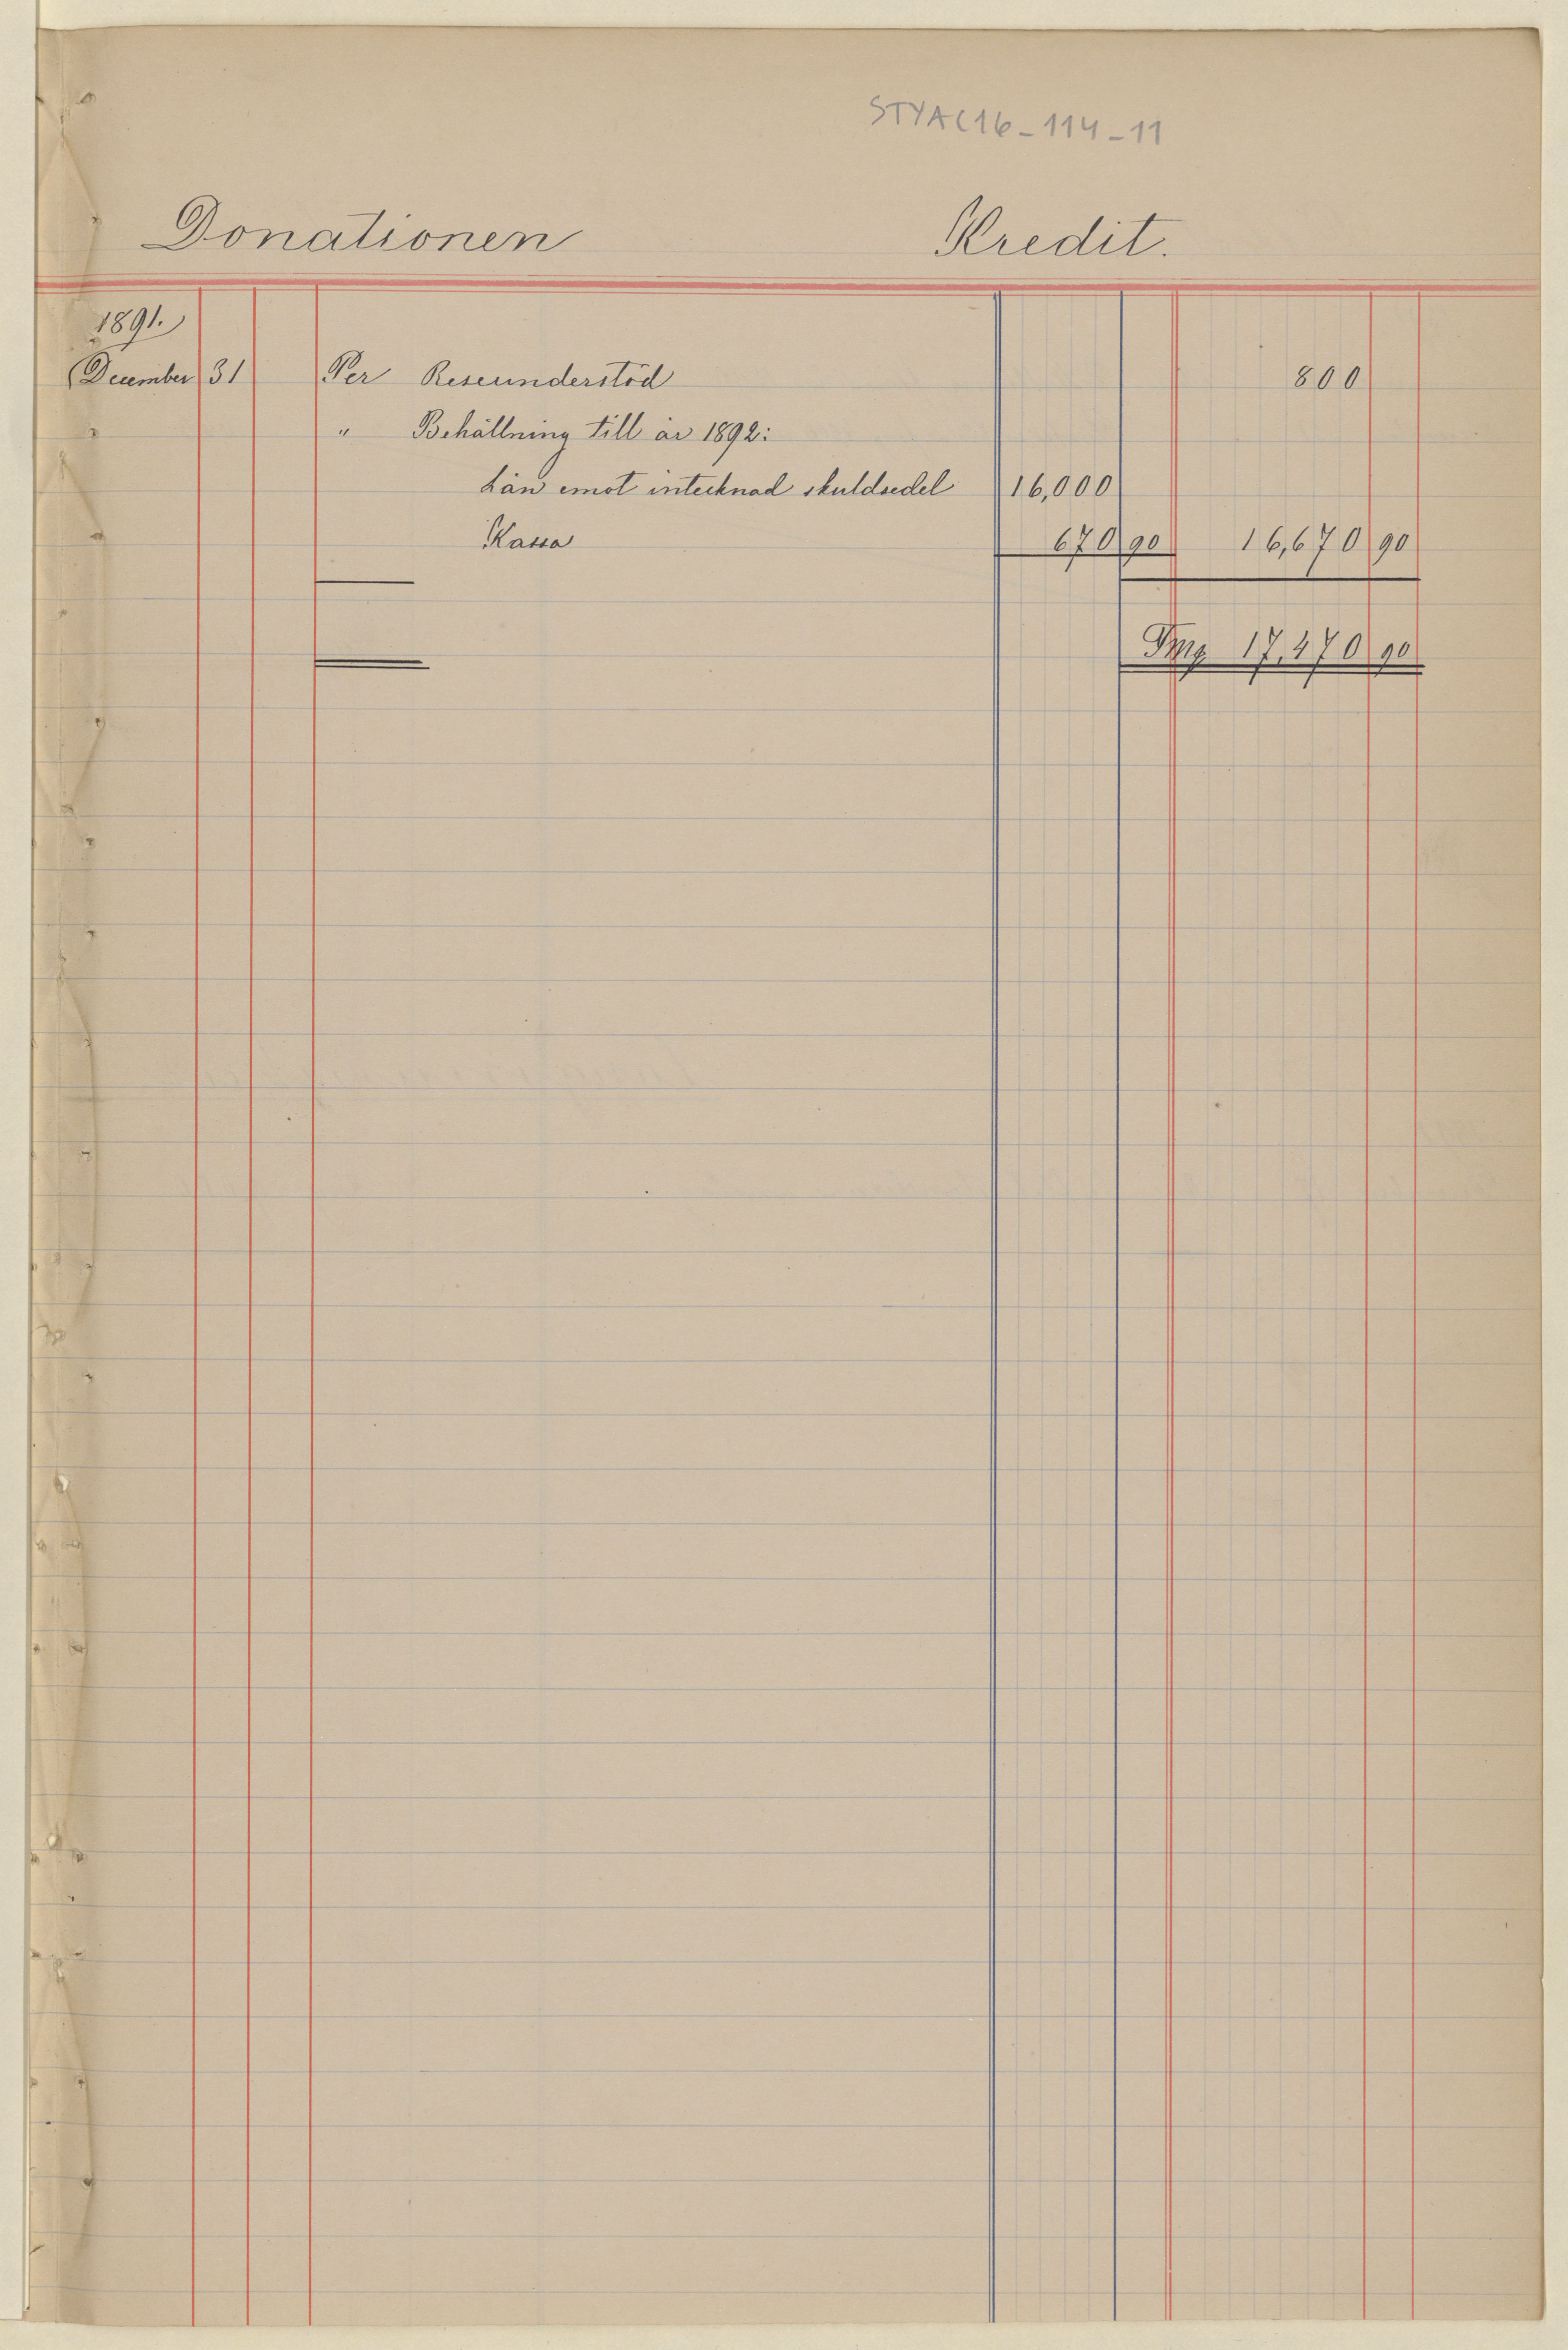 STYAC16-114-11
Donationen Kredit.
1891.
December 31 Per Reseunderstöd 800
" Behållning till år 1892:
Lån emot intecknad skuldsedel 16,000
Kassa 670 90 16,670 90
Fmg 17,470 90